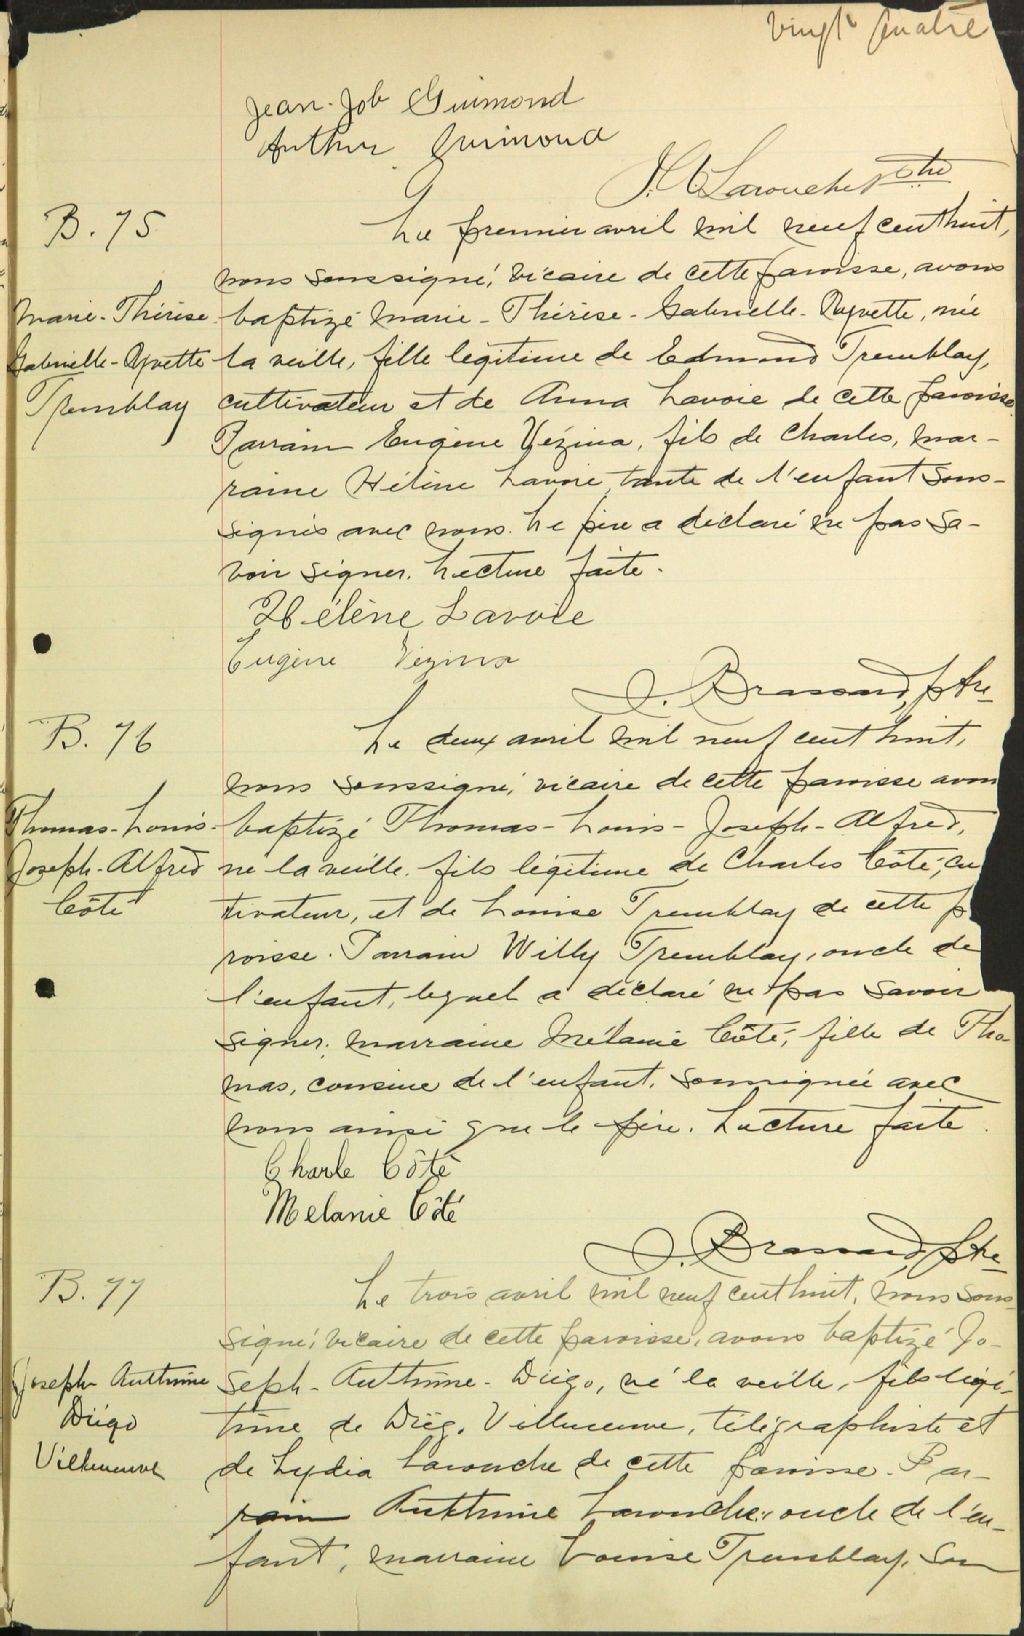 vingt quatre
Jean-Job Guimond
Arthur Guimond
Larouche ptre
B. 75
Le premier avril mil neuf cent huit,
nous soussigné, vicaire de cette paroisse, avons
Marie-Thérèse
baptizé Marie-Thérèse-Gabrielle-Yvette, née
Gabrielle-Yvette
la veille, fille légitime de Edmond Tremblay,
Tremblay
cultivateur et de Anna Lavoie de cette paroisse
Parrain Eugène Vézina, fils de Charles, mar-
raine Hélène Lavoie, tante de l'enfant sous-
signés avec nous. Le père a déclaré ne pas sa-
voir signer. Lecture faite.
Hélène Lavoie
Eugène Vézina
J. Brassard, ptre
B. 76
Le deux avril mil neuf cent huit,
nous soussigné, vicaire de cette paroisse avons
Thomas-Louis-
baptizé Thomas-Louis-Joseph-Alfred,
Joseph-Alfred
né la veille, fils légitime de Charles Côté, cu
Côté
tivateur, et de Louise Tremblay de cette p
roisse. Parrain Willy Tremblay, oncle de
l'enfant, lequel a déclaré ne pas savoir
signer, marraine Mélanie Côté, fille de Tho-
mas, cousine de l'enfant, soussignée avec
nous ainsi que le père. Lecture faite.
Charle Côté
Melanie Côté
J. Brassard, ptre
B. 77
Le trois avril mil neuf cent huit, nous sous-
signé, vicaire de cette paroisse, avons baptizé Jo-
Joseph Anthime
seph-Anthime-Diégo, né la veille, fils légi-
Diégo
time de Diég. Villeneuve, télégraphiste et
Villeneuve
de Lydia Larouche de cette paroisse. Par-
rain Anthime Larouche, oncle de l'en-
fant, marraine Louise Tremblay, son